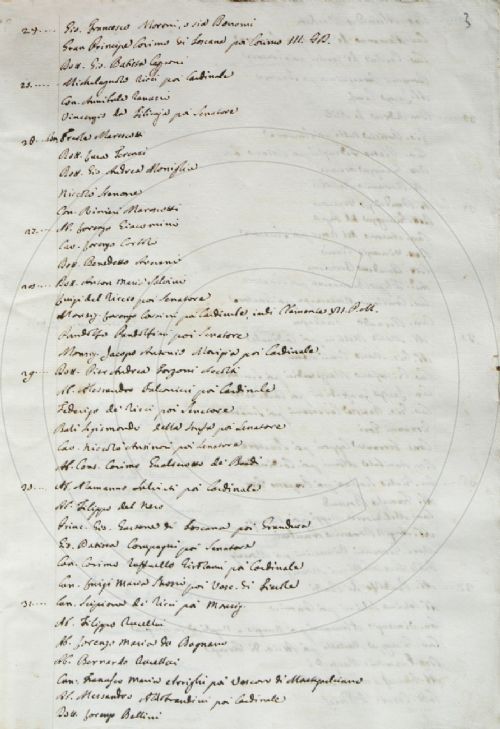 3
24.... Gio. Francesco Moroni, o sia Bononi
Gran Principe Cosimo di Toscana poi Cosimo III. GD.
Dott. Gio. Batista
25.... Michelagnolo Ricci poi Cardinale
Con. Annibale Ranuzzi
Vincenzio da Filicaja poi Senatore
26. Con. Ercole Marescotti
Dott. Luca Terenzi
Dott. Gio. Andrea Moniglia
Niccolò Stenone
Con. Rinieri Marescotti
27.... Ab. Lorenzo Giacomini
Cav. Lorenzo
Dott. Benedetto Averani
28.... Dott. Anton Maria Salvini
Luigi del Riccio poi Senatore
Monsig. Lorenzo Corsini poi Cardinale, indi Clemente XII. P.
Pandolfo Pandolfini poi Senatore
Monsig. Jacopo Antonio Morigia poi Cardinale
29.... Dott. Pier Andrea Forzoni Accolti
Ab. Alessandro Falconieri poi Cardinale
Federigo de' Ricci poi Senatore
Bali Sigismondo della Stufa poi Senatore
Cav. Niccolò Ansinori poi Senatore
Ab. Con. Cosimo Gualterotto de' Bardi
30.... Ab. Alamanno Salviati poi Cardinale
Ab. Filippo del Nero
Princ. Gio. Gastone di Toscana poi Granduca
Gio. Batista Compagni poi Senatore
Can. Cosimo Raffaello Girolami poi Cardinale
Can. Luigi Maria poi Vesc. di Fiesole
31.... Can. Scipione de' Ricci poi Monsig.
Ab. Filippo Rucellai
Ab. Lorenzo Maria da Bagnano
Ab. Bernardo Rucellai
Can. Francesco Maria Arrighi poi Vescovo di Montepulciano
Ab. Alessandro Aldobrandini poi Cardinale
Dott. Lorenzo Bellini